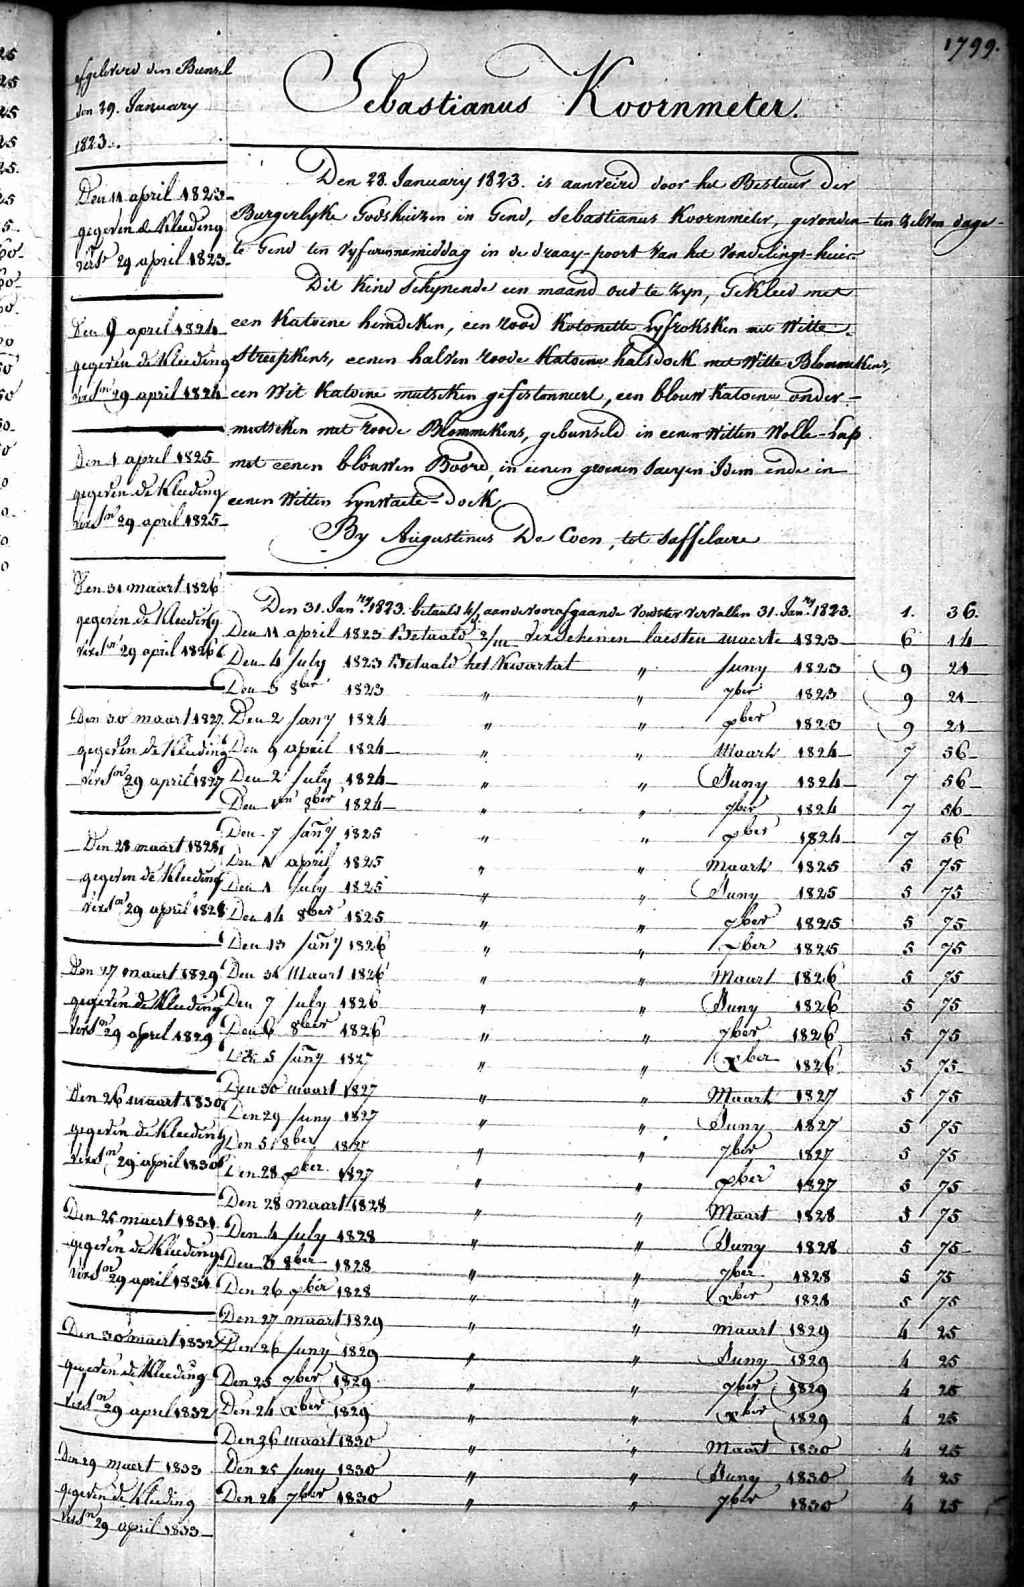 1799.
Sebastianus Koornmeter.
afgeleverd den Bunsel
den 29. January
1823.
Den 28. January 1823. is aanveird door het Bestuur der
Burgerlyke Godshuizen in Gend, Sebastianus Koornmeter, gevonden ten zelven dage
te Gend ten vyf uren namiddag in de draay-poort van het Vondelings-huis
Dit Kind Schynende een maand oud te zyn, Gekleed met
een Katoene hemdeken, een rood Kotonette Lyfroksken met Witte
Streepkens, eenen halven roode Katoene halsdoek met Witte Blommekens,
een Wit Katoene mutseken gefestonneert, een blouw Katoene onder-
mutseken met roode Blommekens, gebunseld in eenen Witten Wolle-Lap
met eenen blouwen Boord, in eenen groenen Saeyen Idem ende in
eenen Witten Lynwaete-doek
By Augustinus De Coen, tot Saffelaere
Den 11 april 1823
gegeven de Kleeding
vers^n 29 april 1823
Den 9 april 1824
gegeven de Kleeding
vers^n 29 april 1824
Den 1 april 1825
gegeven de Kleeding
vers^n 29 april 1825
Den 31 maart 1826
gegeven de Kleeding
vers^n 29 april 1826
Den 30 maart 1827
gegeven de Kleeding
vers^n 29 april 1827
Den 28 maart 1828
gegeven de Kleeding
vers^n 29 april 1828
Den 27 maart 1829
gegeven de Kleeding
vers^n 29 april 1829
Den 26 maart 1830
gegeven de Kleeding
vers^n 29 april 1830
Den 25 maert 1831
gegeven de Kleeding
vers^n 29 april 1831
Den 30 maert 1832
gegeven de Kleeding
vers^n 29 april 1832
Den 29 maert 1833
gegeven de Kleeding
vers^n 29 april 1833
Den 31. Jan^ry 1823. betaald aan de voorafgaande Voedster vervallen 31. Jan^ry 1823. 1. 36.
Den 11 april 1823 Betaald 2/m Verschenen laesten maerte 1823 6 14
Den 4 July 1823 Betaald het Kwartal " Juny 1823 9 21
Den 3 8ber 1823 " " 7ber 1823 9 21
Den 2 Jany 1824 " " xber 1823 9 21
Den 9 april 1824 " " Maart 1824 7 56
Den 2 July 1824 " " Juny 1824 7 56
Den 1en 8ber 1824 " " 7ber 1824 7 56
Den 7 Jany 1825 " " xber 1824 7 56
Den 1 april 1825 " " Maart 1825 5 75
Den 1 July 1825 " " Juny 1825 5 75
Den 14 8ber 1825 " " 7ber 1825 5 75
Den 13 Jany 1826 " " xber 1825 5 75
Den 31 Maart 1826 " " Maart 1826 5 75
Den 7 July 1826 " " Juny 1826 5 75
Den 6 8ber 1826 " " 7ber 1826 5 75
Den 5 Jany 1827 " " xber 1826 5 75
Den 30 maart 1827 " " Maart 1827 5 75
Den 29 Juny 1827 " " Juny 1827 5 75
Den 5 8ber 1827 " " 7ber 1827 5 75
Den 28 xber 1827 " " xber 1827 5 75
Den 28 maart 1828 " " Maart 1828 5 75
Den 4 July 1828 " " Juny 1828 5 75
Den 3 8ber 1828 " " 7ber 1828 5 75
Den 26 xber 1828 " " xber 1828 5 75
Den 27 maart 1829 " " maart 1829 4 25
Den 26 Juny 1829 " " Juny 1829 4 25
Den 25 7ber 1829 " " 7ber 1829 4 25
Den 24 xber 1829 " " xber 1829 4 25
Den 26 maart 1830 " " Maart 1830 4 25
Den 25 Juny 1830 " " Juny 1830 4 25
Den 24 7ber 1830 " " 7ber 1830 4 25